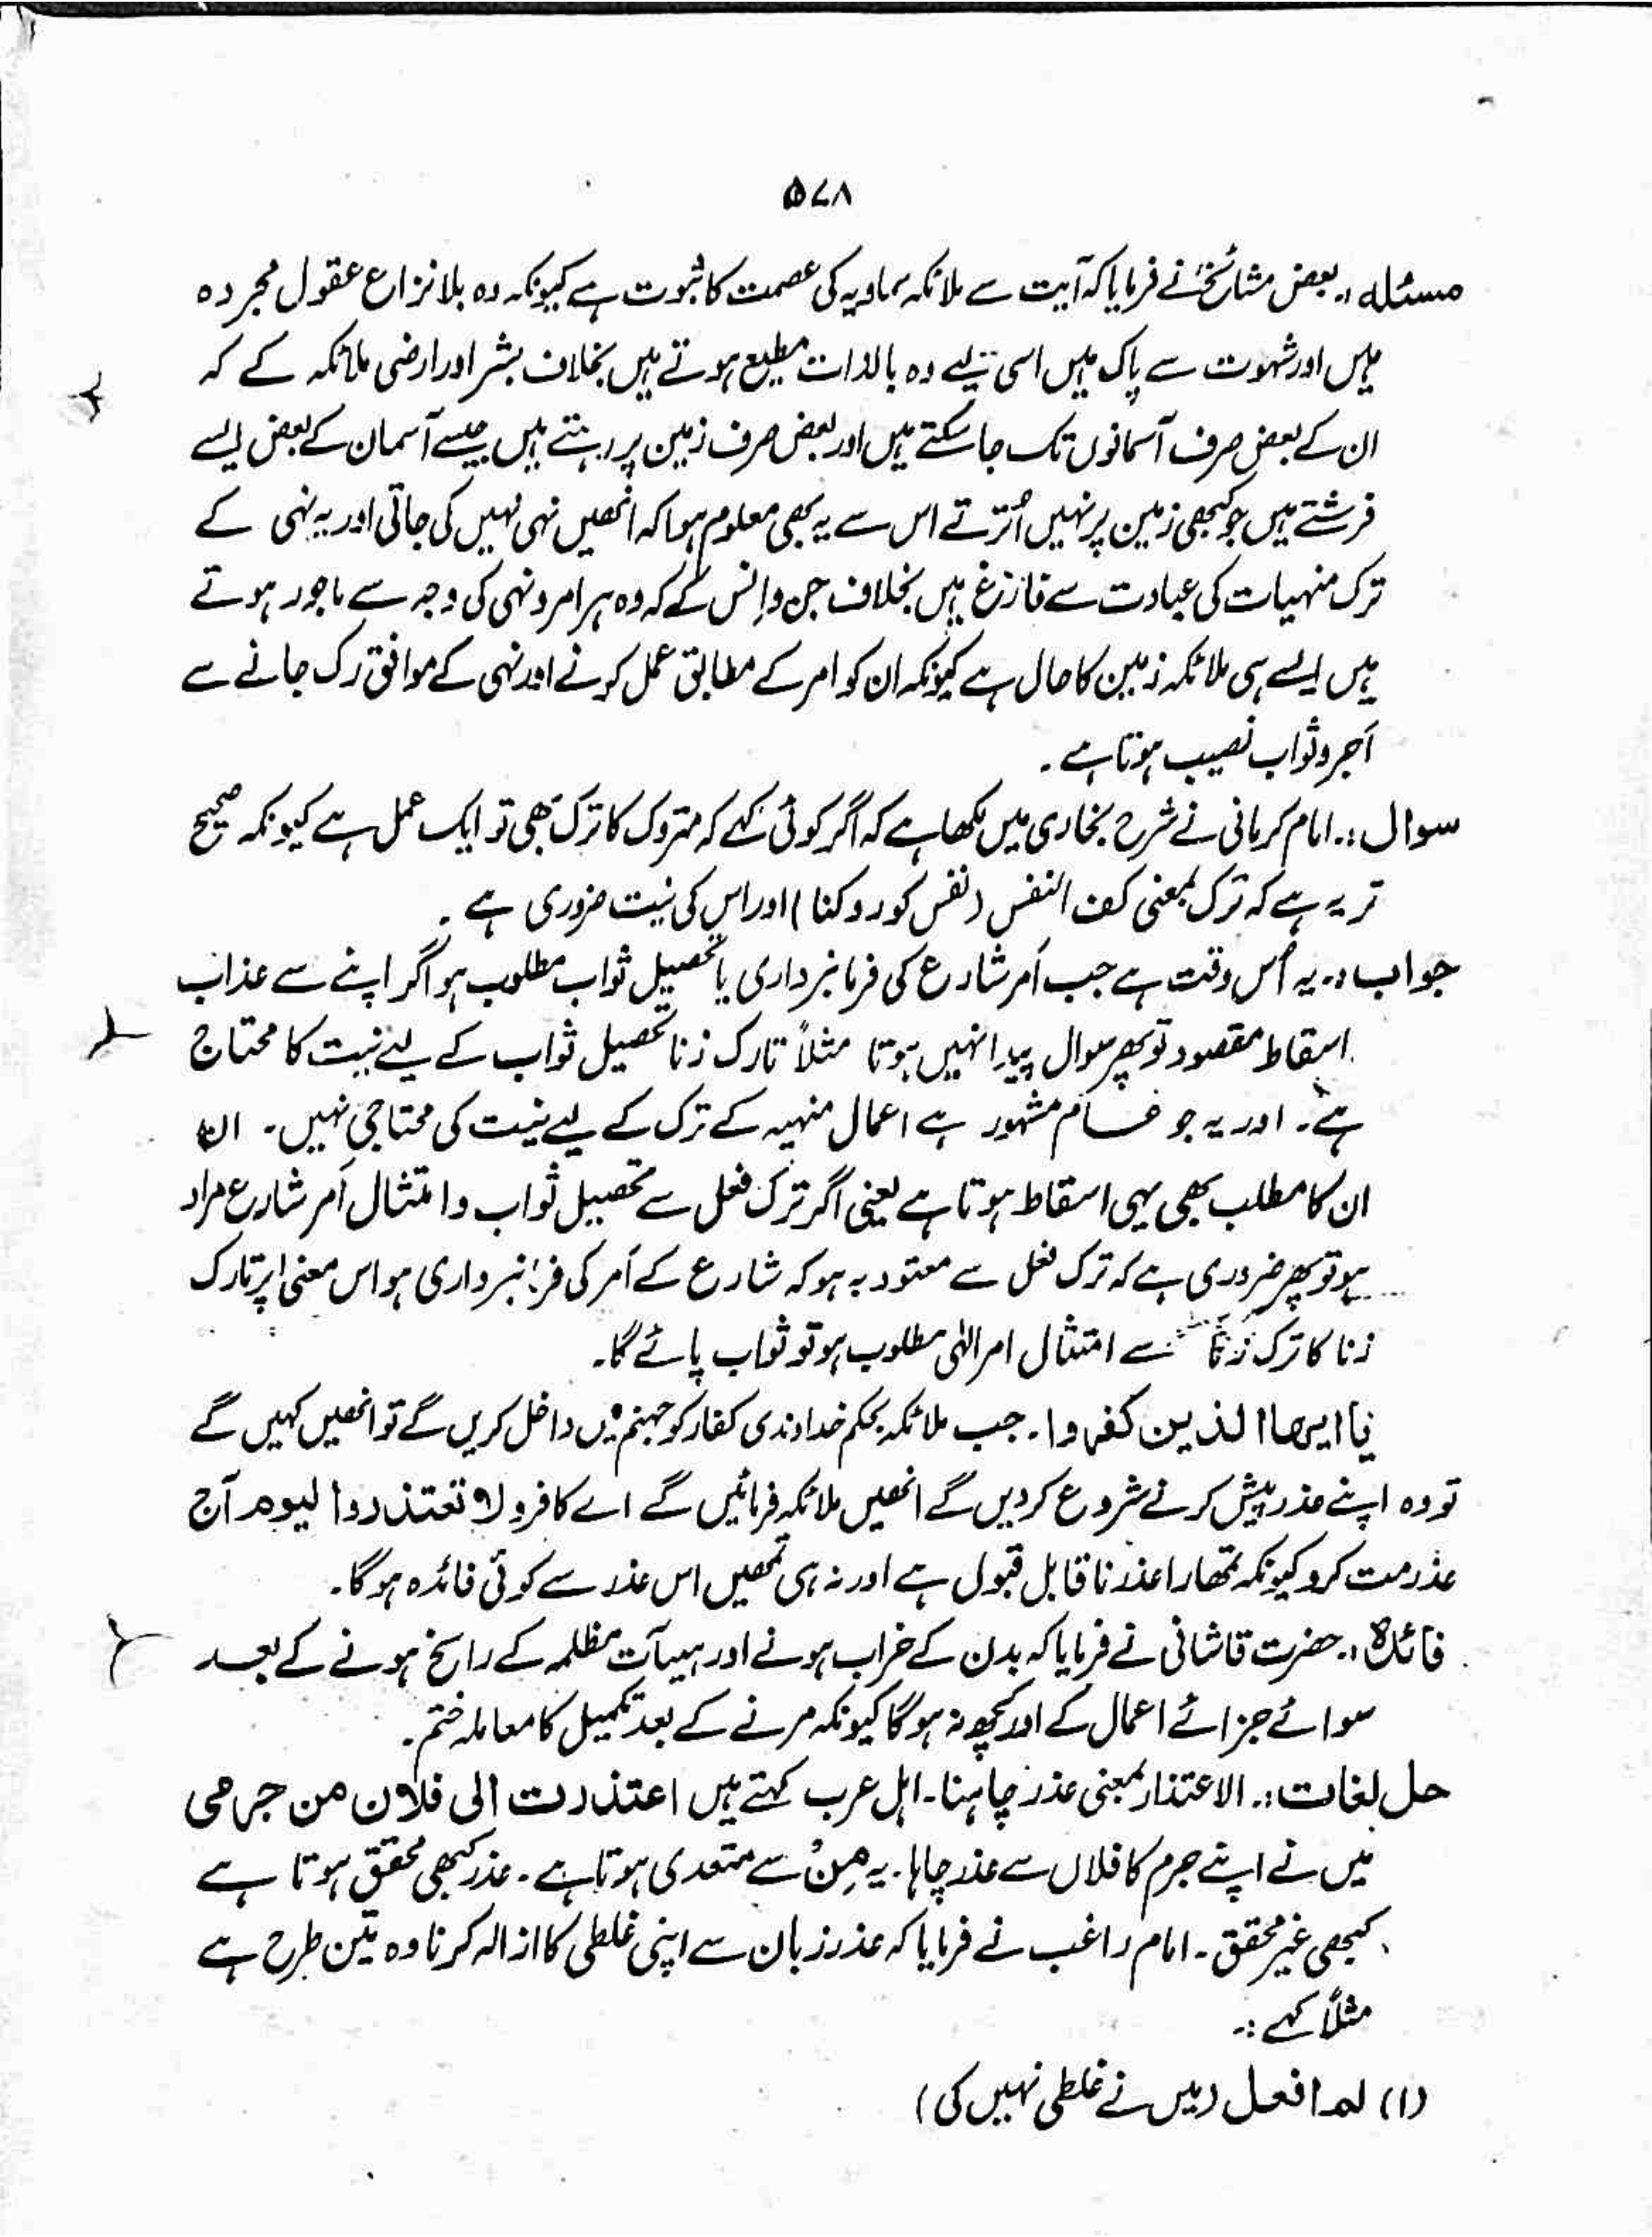 ۵۷۸
مسئلہ :۔ بعض مشائخ نے فرمایا کہ آیت سے ملائکہ سماویہ کی عصمت کا ثبوت ہے کیونکہ وہ بلا نزاع عقول مجردہ
ہیں اور شہوت سے پاک ہیں اسی لیے وہ بالذات مطیع ہوتے ہیں بخلاف بشر اور ارضی ملائکہ کے کہ
ان کے بعض صرف آسمانوں تک جا سکتے ہیں اور بعض صرف زمین پر رہتے ہیں جیسے آسمان کے بعض ایسے
فرشتے ہیں جو کبھی زمین پر نہیں اُترتے اس سے یہ بھی معلوم ہوا کہ انھیں نہی نہیں کی جاتی اور یہ نہی کے
ترک منہیات کی عبادت سے فارغ ہیں بخلاف جن و اِنس کے کہ وہ ہر امر و نہی کی وجہ سے ماجور ہوتے
ہیں ایسے ہی ملائکہ زمین کا حال ہے کیونکہ ان کو امر کے مطابق عمل کرنے اور نہی کے موافق رک جانے سے
اَجر و ثواب نصیب ہوتا ہے ۔
سوال :۔ امام کرمانی نے شرح بخاری میں لکھا ہے کہ اگر کوئی کہے کہ متروک کا ترک بھی تو ایک عمل ہے کیونکہ صحیح
تر یہ ہے کہ ترک بمعنی کف النفس (نفس کو روکنا) اور اس کی نیت ضروری ہے ۔
جواب :۔ یہ اُس وقت ہے جب اَمر شارع کی فرمانبرداری یا تحصیل ثواب مطلوب ہو اگر اپنے سے عذاب
اسقاط مقصود تو پھر سوال پیدا نہیں ہوتا مثلاً تارک زنا تحصیل ثواب کے لیے نیت کا محتاج
ہے ۔ اور یہ جو مشہور ہے اعمال منہیہ کے ترک کے لیے نیت کی محتاجی نہیں ۔ ان
ان کا مطلب بھی یہی اسقاط ہوتا ہے یعنی اگر ترک فعل سے تحصیل ثواب و امتثال اَمر شارع مراد
ہو تو پھر ضروری ہے کہ ترک فعل سے معتود بہ ہو کہ شارع کے اَمر کی فرمانبرداری ہو اس معنی پر تارک
زنا کا ترک زنا سے امتثال امر الٰہی مطلوب ہو تو ثواب پائے گا ۔
یا ایھا الذین کفروا ۔ جب ملائکہ بحکم خداوندی کفار کو جہنم میں داخل کریں گے تو انھیں کہیں گے
تو وہ اپنے عذر پیش کرنے شروع کر دیں گے انھیں ملائکہ فرمائیں گے اے کافرو لا تعتذروا الیوم آج
عذر مت کرو کیونکہ تمھارا عذر ناقابل قبول ہے اور نہ ہی تمھیں اس عذر سے کوئی فائدہ ہوگا ۔
فائدہ :۔ حضرت قاشانی نے فرمایا کہ بدن کے خراب ہونے اور ہیئآت مظلمہ کے راسخ ہونے کے بعد
سوائے جزائے اعمال کے اور کچھ نہ ہوگا کیونکہ مرنے کے بعد تکمیل کا معاملہ ختم ۔
حل لغات :۔ الاعتذار بمعنی عذر چاہنا ۔ اہل عرب کہتے ہیں اعتذرت الی فلان من جرمی
میں نے اپنے جرم کا فلاں سے عذر چاہا ۔ یہ مِنْ سے متعدی ہوتا ہے ۔ عذر کبھی محقق ہوتا ہے
کبھی غیر محقق ۔ امام راغب نے فرمایا کہ عذر زبان سے اپنی غلطی کا ازالہ کرنا وہ تین طرح ہے
مثلاً کہے :۔
(۱) لم افعل (میں نے غلطی نہیں کی)